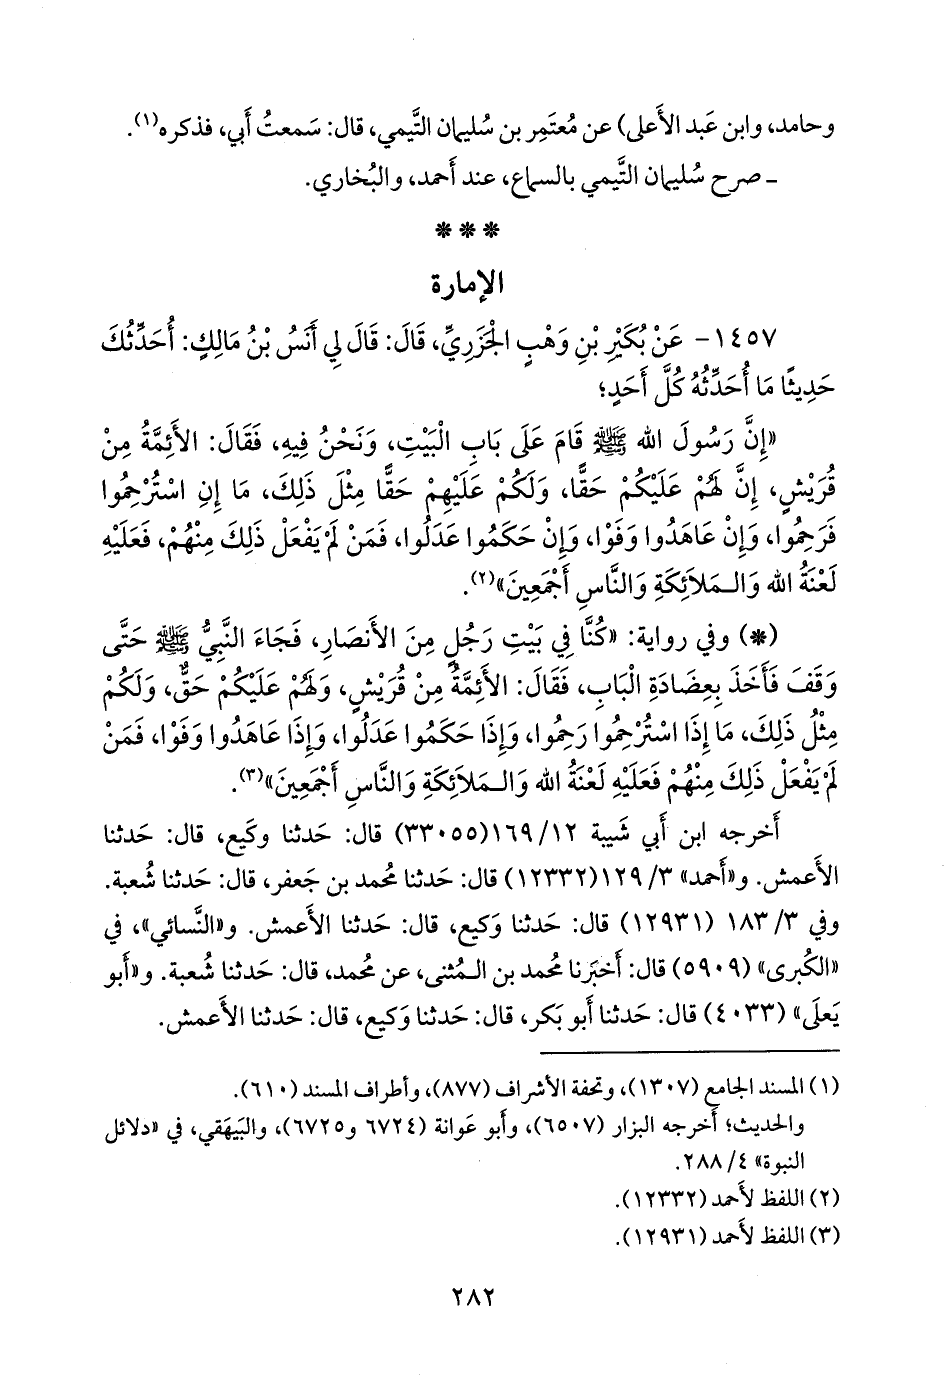 وحامد، وابن عَبد الأَعلى) عن مُعتَمِر بن سُليمان التَّيمي، قال: سَمعتُ أَبي، فذكره(١).
ـ صرح سُليمان التَّيمي بالسماع، عند أَحمد، والبُخاري.
* * *
الإمارة
١٤٥٧- عَنْ بُكَيْرِ بْنِ وَهْبٍ الْجَزَرِيِّ، قَالَ: قَالَ لِي أَنَسُ بْنُ مَالِكٍ: أُحَدِّثُكَ
حَدِيثًا مَا أُحَدِّثُهُ كُلَّ أَحَدٍ؛
«إِنَّ رَسُولَ الله ﷺ قَامَ عَلَى بَابِ الْبَيْتِ، وَنَحْنُ فِيهِ، فَقَالَ: الأَئِمَّةُ مِنْ
قُرَيْشٍ، إِنَّ لَهُمْ عَلَيْكُمْ حَقًّا، وَلَكُمْ عَلَيْهِمْ حَقًّا مِثْلَ ذَلِكَ، مَا إِنِ اسْتُرْحِمُوا
فَرَحِمُوا، وَإِنْ عَاهَدُوا وَفَوْا، وَإِنْ حَكَمُوا عَدَلُوا، فَمَنْ لَمْ يَفْعَلْ ذَلِكَ مِنْهُمْ، فَعَلَيْهِ
لَعْنَةُ الله وَالـمَلاَئِكَةِ وَالنَّاسِ أَجْمَعِينَ»(٢).
(*) وفي رواية: «كُنَّا فِي بَيْتِ رَجُلٍ مِنَ الأَنْصَارِ، فَجَاءَ النَّبِيُّ ﷺ حَتَّى
وَقَفَ فَأَخَذَ بِعِضَادَةِ الْبَابِ، فَقَالَ: الأَئِمَّةُ مِنْ قُرَيْشٍ، وَلَهُمْ عَلَيْكُمْ حَقٌّ، وَلَكُمْ
مِثْلُ ذَلِكَ، مَا إِذَا اسْتُرْحِمُوا رَحِمُوا، وَإِذَا حَكَمُوا عَدَلُوا، وَإِذَا عَاهَدُوا وَفَوْا، فَمَنْ
لَمْ يَفْعَلْ ذَلِكَ مِنْهُمْ فَعَلَيْهِ لَعْنَةُ الله وَالـمَلاَئِكَةِ وَالنَّاسِ أَجْمَعِينَ»(٣).
أَخرجه ابن أَبي شَيبة ١٢/ ١٦٩(٣٣٠٥٥) قال: حَدثنا وكَيع، قال: حَدثنا
الأَعمش. و«أَحمد» ٣/ ١٢٩(١٢٣٣٢) قال: حَدثنا مُحمد بن جَعفر، قال: حَدثنا شُعبة.
وفي ٣/ ١٨٣ (١٢٩٣١) قال: حَدثنا وَكيع، قال: حَدثنا الأَعمش. و«النَّسائي»، في
«الكُبرى» (٥٩٠٩) قال: أَخبَرنا مُحمد بن الـمُثنى، عن مُحمد، قال: حَدثنا شُعبة. و«أَبو
يَعلَى» (٤٠٣٣) قال: حَدثنا أَبو بَكر، قال: حَدثنا وَكيع، قال: حَدثنا الأَعمش.
(١) المسند الجامع (١٣٠٧)، وتحفة الأشراف (٨٧٧)، وأطراف المسند (٦١٠).
والحديث؛ أَخرجه البزار (٦٥٠٧)، وأَبو عَوانة (٦٧٢٤ و٦٧٢٥)، والبَيهَقي، في «دلائل
النبوة» ٤/ ٢٨٨.
(٢) اللفظ لأَحمد (١٢٣٣٢).
(٣) اللفظ لأَحمد (١٢٩٣١).
٢٨٢